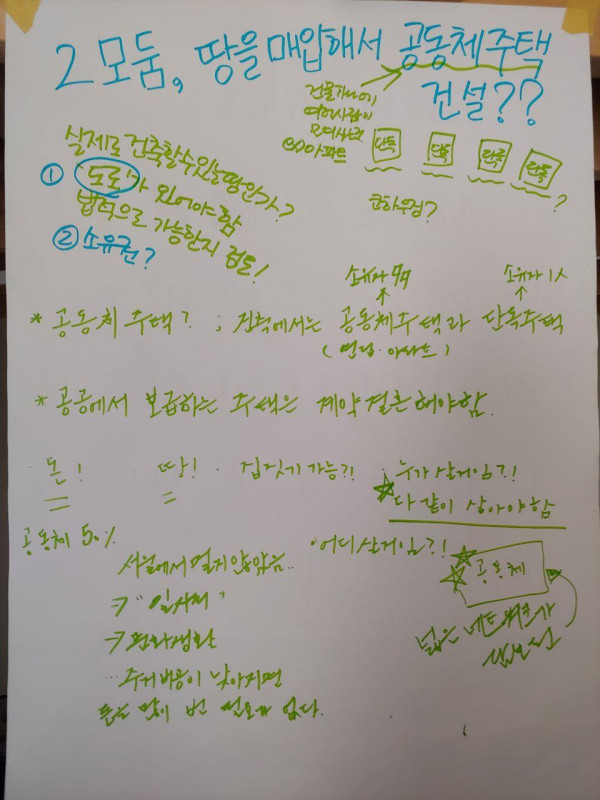 2모둠, 땅을 매입해서 공동체주택
건설??
건물하나에
여러사람이
모여사는
ex)아파트
단독 단독 단독 단독 ?
코하우징?
실제로 건축할수있는땅인가?
① 도로가 있어야함
법적으로 가능한지 검토!
② 소유권?
소유자 소유자 1人
* 공동체 주택? ; 건축에서는 공동체주택과 단독주택
(연립·아파트)
* 공공에서 보급하는 주택은 계약 결혼해야함.
· 돈! 땅! · 집짓기 가능?!
· 누가 살거임?!
다같이 살아야함
공동체 50%
· 어디살거임?!
서울에서 멀지않았음..
→ "일자리"
→ 문화생활
공동체
넓은 네트워크가
...주거비용이 낮아지면
돈을 많이 번 필요가 없다.